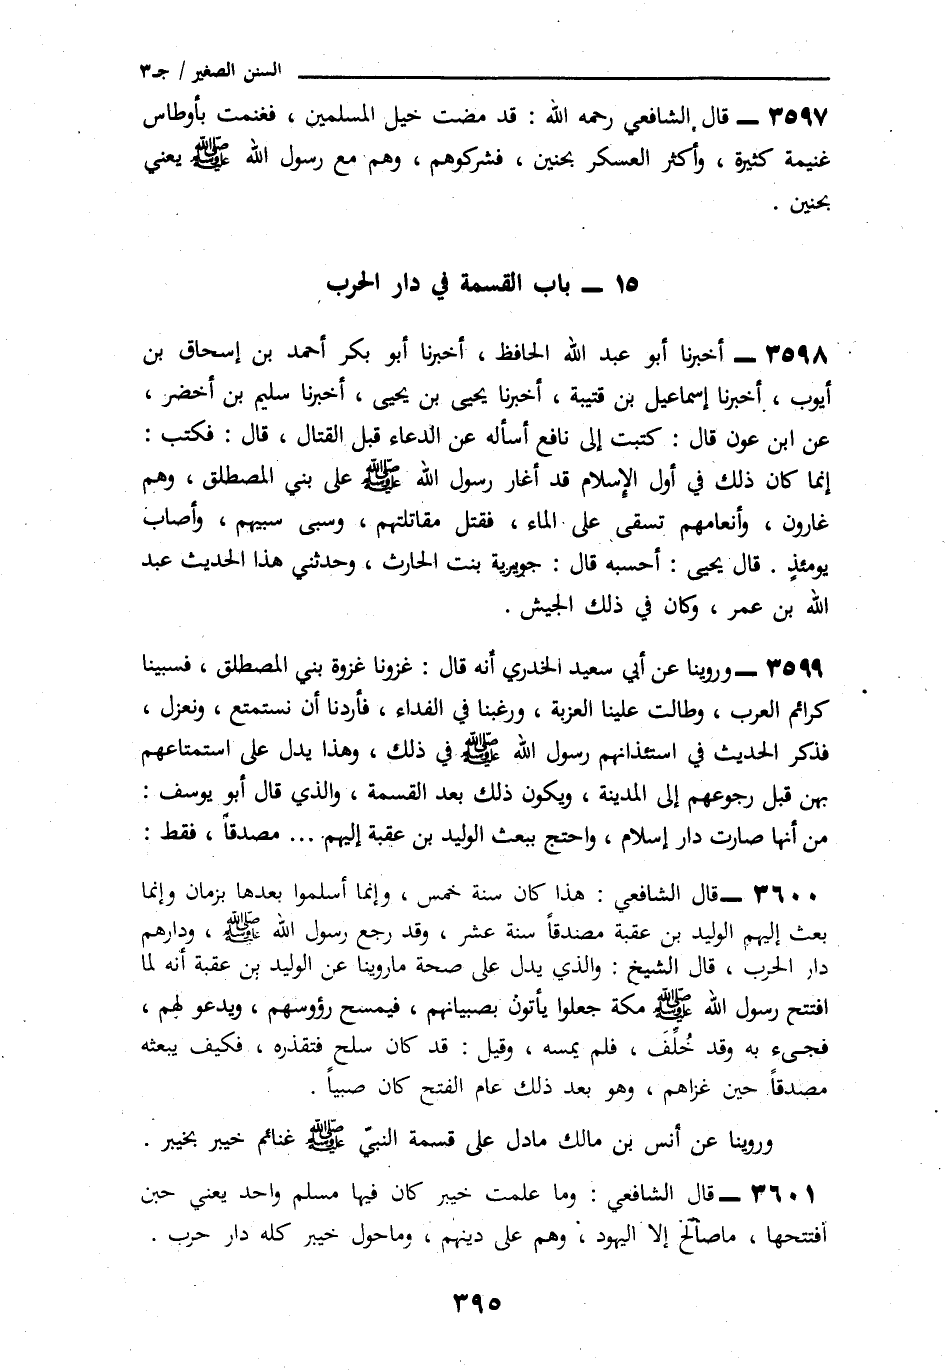 السنن الصغير / جـ٣
٣٥٩٧ ــ قال الشافعي رحمه الله : قد مضت خيل المسلمين ، فغنمت بأوطاس
غنيمة كثيرة ، وأكثر العسكر بحنين ، فشركوهم ، وهم مع رسول الله ﷺ يعني
بحنين .
١٥ ــ باب القسمة في دار الحرب
٣٥٩٨ ــ أخبرنا أبو عبد الله الحافظ ، أخبرنا أبو بكر أحمد بن إسحاق بن
أيوب ، أخبرنا إسماعيل بن قتيبة ، أخبرنا يحيى بن يحيى ، أخبرنا سليم بن أخضر ،
عن ابن عون قال : كتبت إلى نافع أسأله عن الدعاء قبل القتال ، قال : فكتب :
إنما كان ذلك في أول الإسلام قد أغار رسول الله ﷺ على بني المصطلق ، وهم
غارون ، وأنعامهم تسقى على الماء ، فقتل مقاتلتهم ، وسبى سبيهم ، وأصاب
يومئذٍ . قال يحيى : أحسبه قال : جويرية بنت الحارث ، وحدثني هذا الحديث عبد
الله بن عمر ، وكان في ذلك الجيش .
٣٥٩٩ ــ وروينا عن أبي سعيد الخدري أنه قال : غزونا غزوة بني المصطلق ، فسبينا
كرائم العرب ، وطالت علينا العزبة ، ورغبنا في الفداء ، فأردنا أن نستمتع ، ونعزل ،
فذكر الحديث في استئذانهم رسول الله ﷺ في ذلك ، وهذا يدل على استمتاعهم
بهن قبل رجوعهم إلى المدينة ، ويكون ذلك بعد القسمة ، والذي قال أبو يوسف :
من أنها صارت دار إسلام ، واحتج ببعث الوليد بن عقبة إليهم ... مصدقاً ، فقط :
٣٦٠٠ ــ قال الشافعي : هذا كان سنة خمس ، وإنما أسلموا بعدها بزمان وإنما
بعث إليهم الوليد بن عقبة مصدقاً سنة عشر ، وقد رجع رسول الله ﷺ ، ودارهم
دار الحرب ، قال الشيخ : والذي يدل على صحة ماروينا عن الوليد بن عقبة أنه لما
افتتح رسول الله ﷺ مكة جعلوا يأتون بصبيانهم ، فيمسح رؤوسهم ، ويدعو لهم ،
فجيء به وقد خُلِّفَ ، فلم يمسه ، وقيل : قد كان سلح فتقذره ، فكيف يبعثه
مصدقاً حين غزاهم ، وهو بعد ذلك عام الفتح كان صبياً .
وروينا عن أنس بن مالك مادل على قسمة النبيّ ﷺ غنائم خيبر بخيبر .
٣٦٠١ ــ قال الشافعي : وما علمت خيبر كان فيها مسلم واحد يعني حين
أفتتحها ، ماصالح إلا اليهود ، وهم على دينهم ، وماحول خيبر كله دار حرب .
٣٩٥